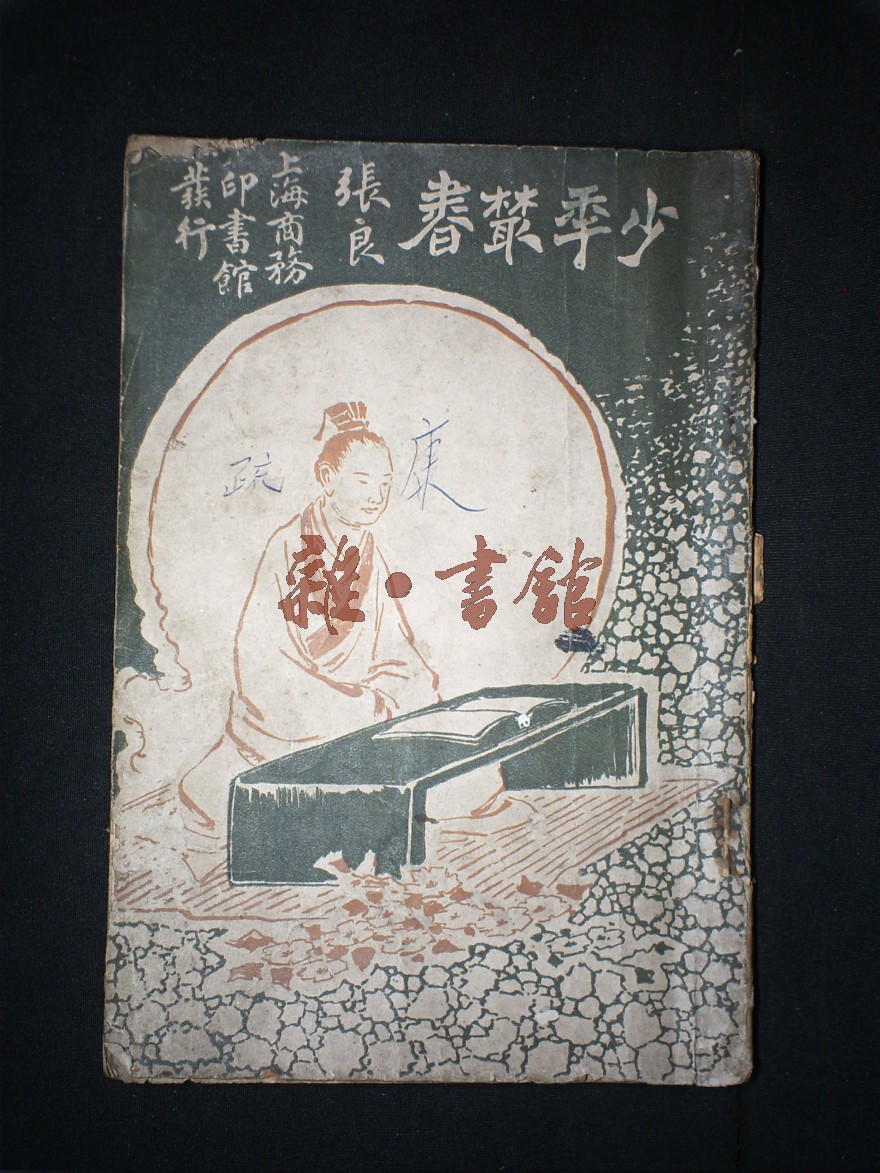 少年叢書
張良
上海商務
印書館
發行
康
疏
雜·書館